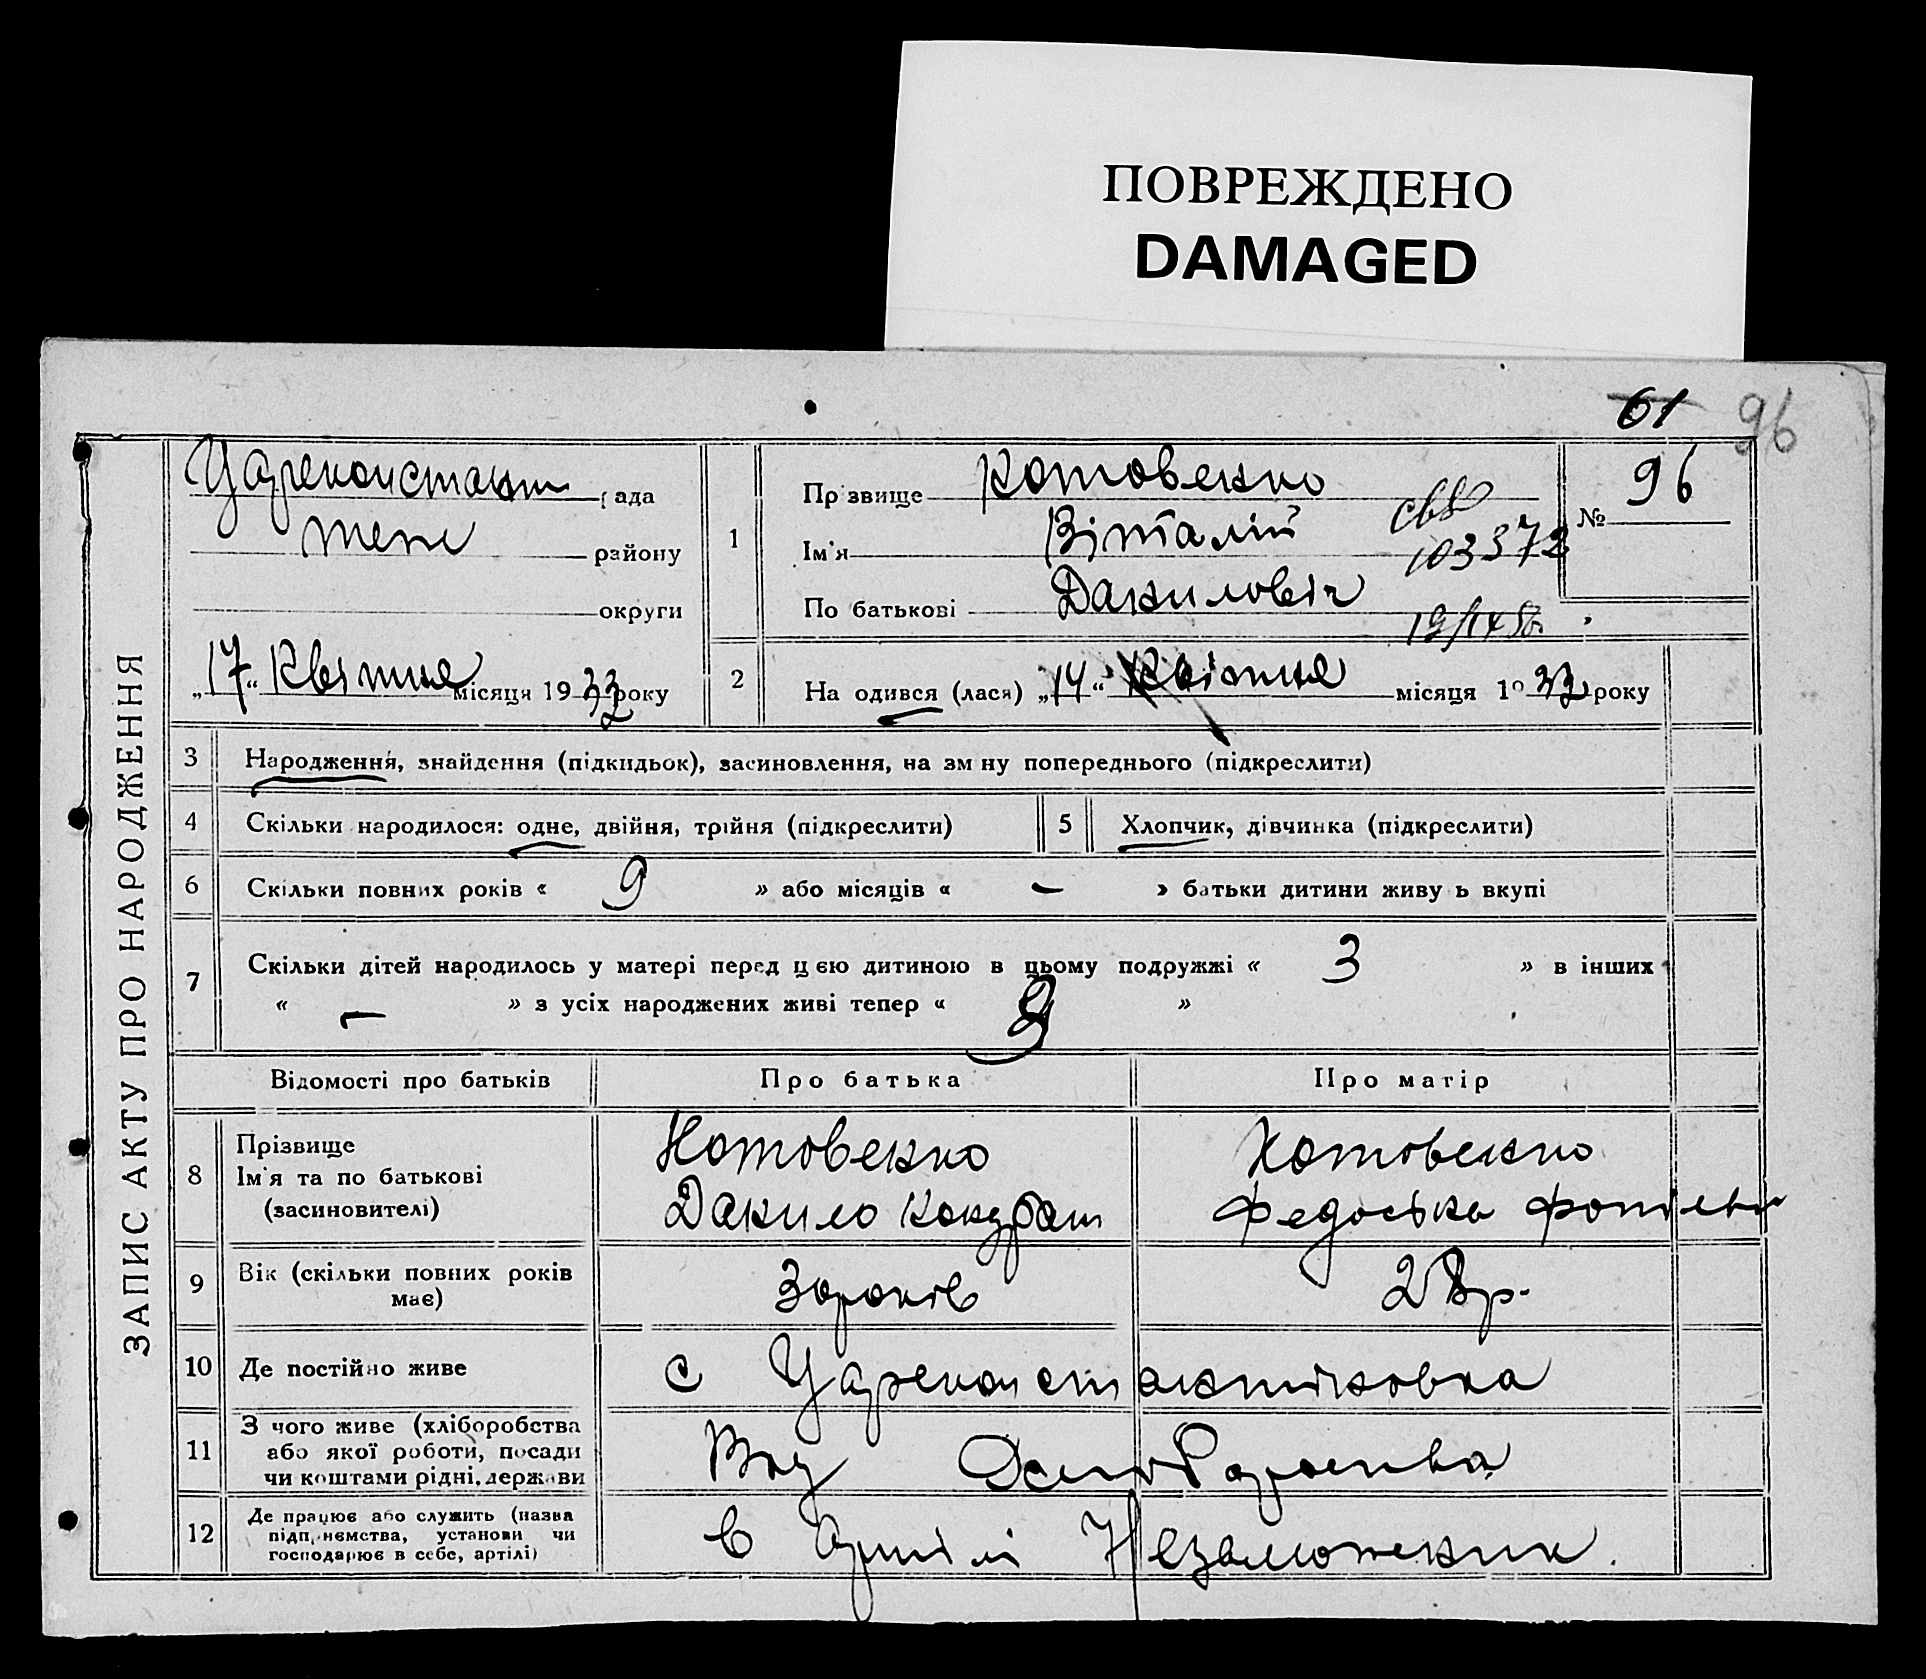 ПОВРЕЖДЕНО
DAMAGED
61 96
ЗАПИС АКТУ ПРО НАРОДЖЕННЯ
Цареконстант рада
теж району
округи
„17“ Квітня місяця 1933 року
1
Прізвище Котовенко
Ім'я Віталій
По батькові Данилович
свід
103372
№ 96
2
На одився (лася) „14“ Квітня місяця 1933 року
3 Народження, знайдення (підкидьок), засиновлення, на зм ну попереднього (підкреслити)
4 Скільки народилося: одне, двійня, трійня (підкреслити) 5 Хлопчик, дівчинка (підкреслити)
6 Скільки повних років « 9 » або місяців « – » батьки дитини живу ь вкупі
7 Скільки дітей народилось у матері перед цією дитиною в цьому подружжі « 3 » в інших
« – » з усіх народжених живі тепер « »
Відомості про батьків Про батька Про матір
8 Прізвище
Ім'я та по батькові
(засиновителі)
Котовенко
Данило Кондрат
Котовенко
Федоська
9 Вік (скільки повних років
має)
30 років 28 р.
10 Де постійно живе с Цареконстантіновка
11 З чого живе (хліборобства
або якої роботи, посади
чи коштами рідні, держави
12 Де працює або служить (назва
підприємства, установи чи
господарює в себе, артілі)
в артілі Незаможник.